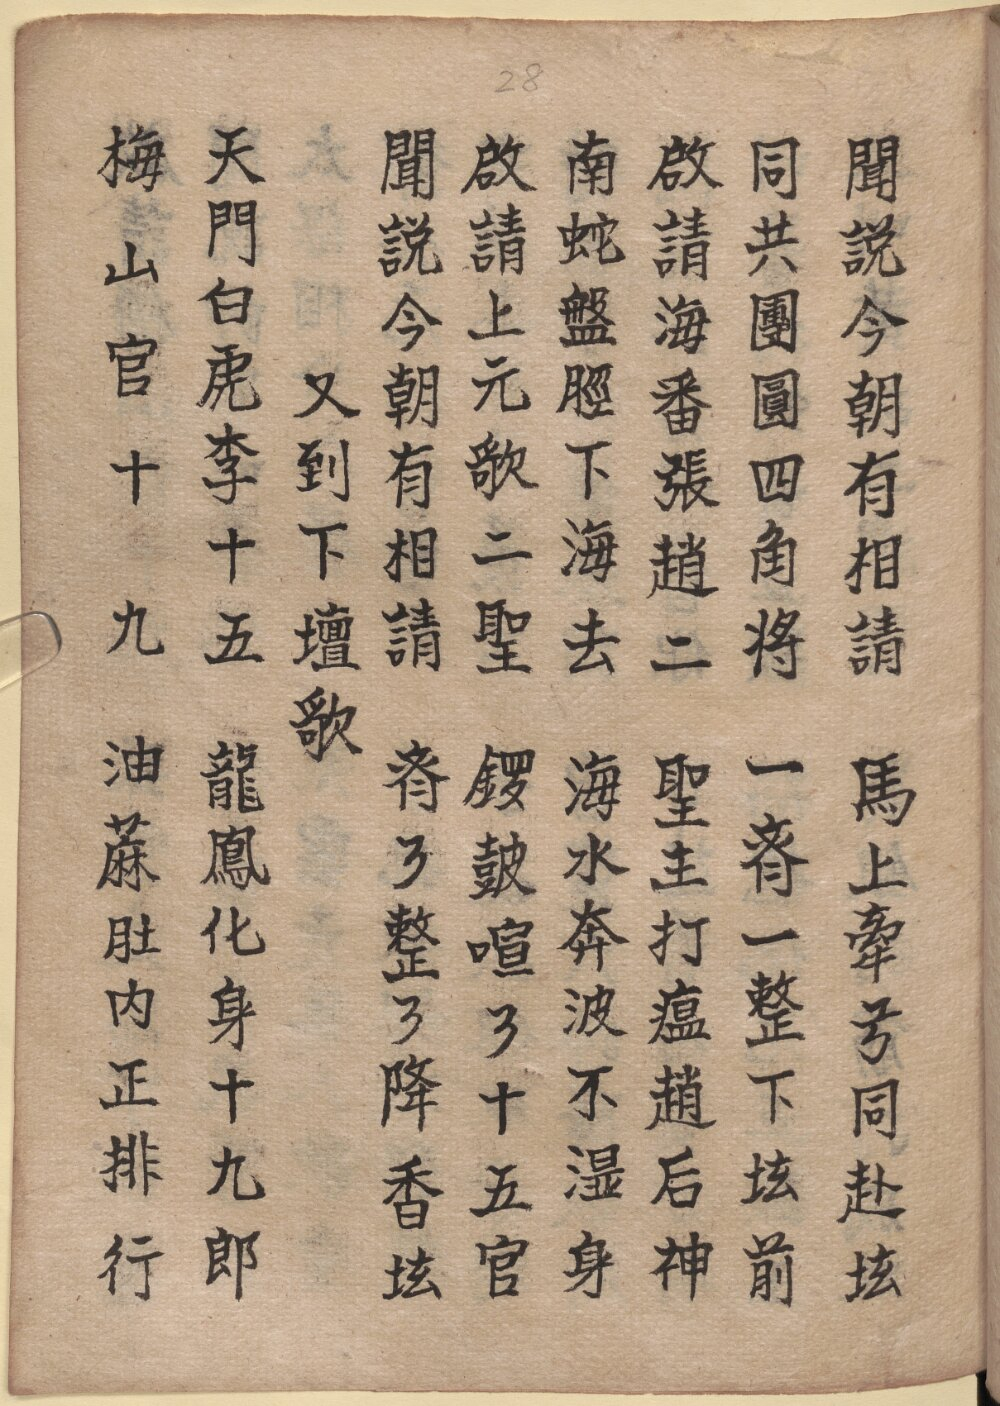 28
聞説今朝有相請 馬上牽兮同赴坛
同共團圓四角将 一齊一整下坛前
啟請海番張趙二 聖主打瘟趙后神
南蛇盤脛下海去 海水奔波不湿身
啟請上元歌二聖 鑼鼓喧了十五官
聞説今朝有相請 齊了整了降香坛
又到下壇歌
天門白虎李十五 龍鳳化身十九郎
梅山官十九 油蔴肚内正排行